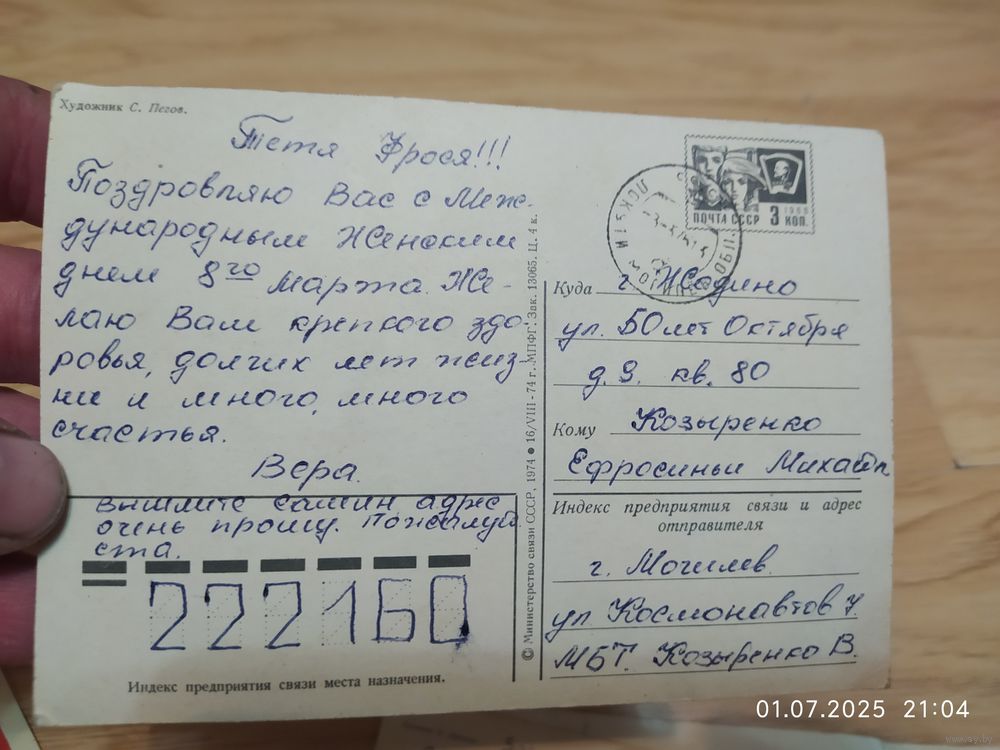 Художник С. Пегов.
Тетя Фрося!!!
Поздровляю Вас с Меж-
дународным Женским
днем 8го Марта. Же-
лаю Вам крепкого здо-
ровья, долгих лет жиз-
ни и много, много
счастья.
Вера.
Вышлите адрес
очень прошу. Пожалуй
ста.
222160
Индекс предприятия связи места назначения.
© Министерство связи СССР, 1974 ● 16/VIII - 74 г. МПФГ. Зак. 13065. Ц. 4 к.
ПОЧТА СССР 3 КОП.
1966
Куда г. Жодино
ул. 50 лет Октября
д. 9. кв. 80
Кому Козыренко
Ефросиньи Михайл
Индекс предприятия связи и адрес
отправителя
г. Могилев.
ул Космонавтов 7
МБТ. Козыренко В.
01.07.2025 21:04
www.ay.by